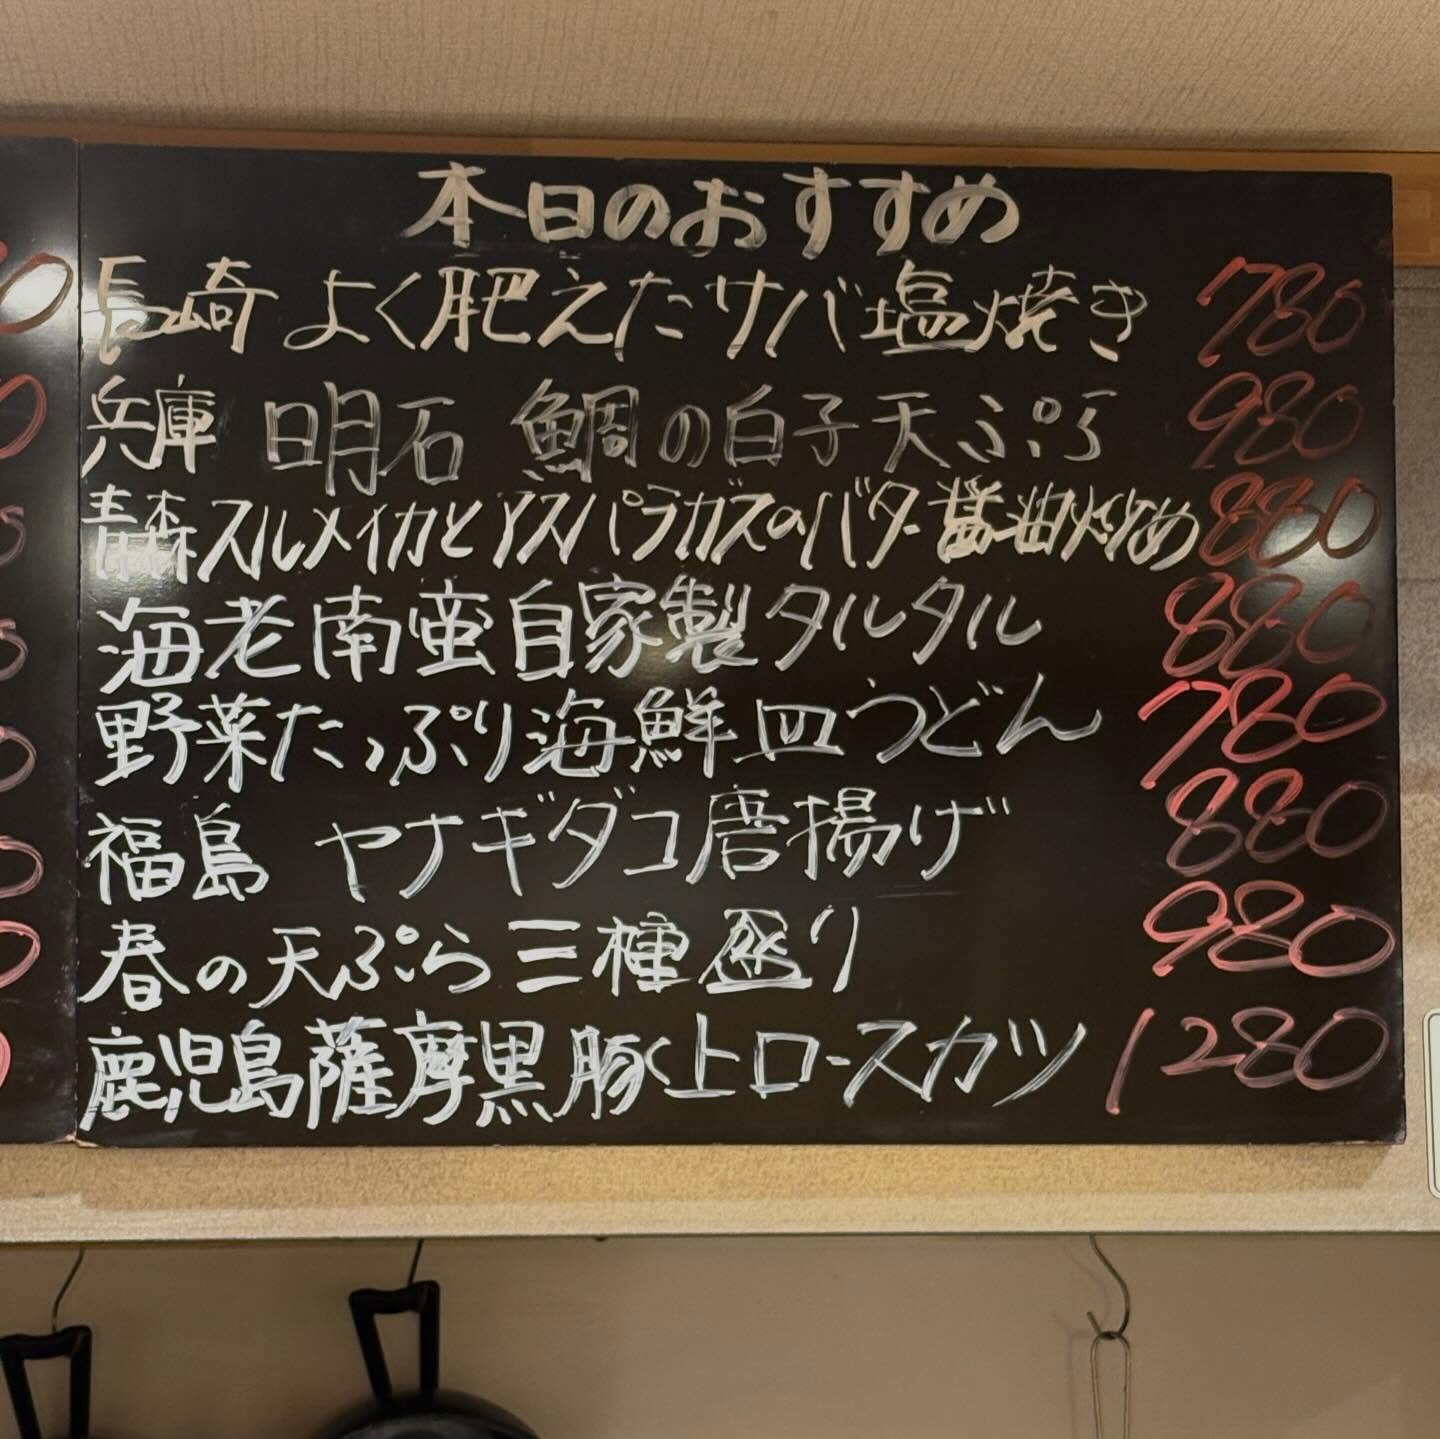 本日のおすすめ
長崎 よく肥えたサバ塩焼き 780
兵庫 明石 鯛の白子天ぷら 980
青森スルメイカとアスパラガスのバター醤油炒め 880
海老南蛮自家製タルタル 880
野菜たっぷり海鮮皿うどん 780
福島 ヤナギダコ唐揚げ 880
春の天ぷら三種盛り 980
鹿児島薩摩黒豚上ロースカツ 1280